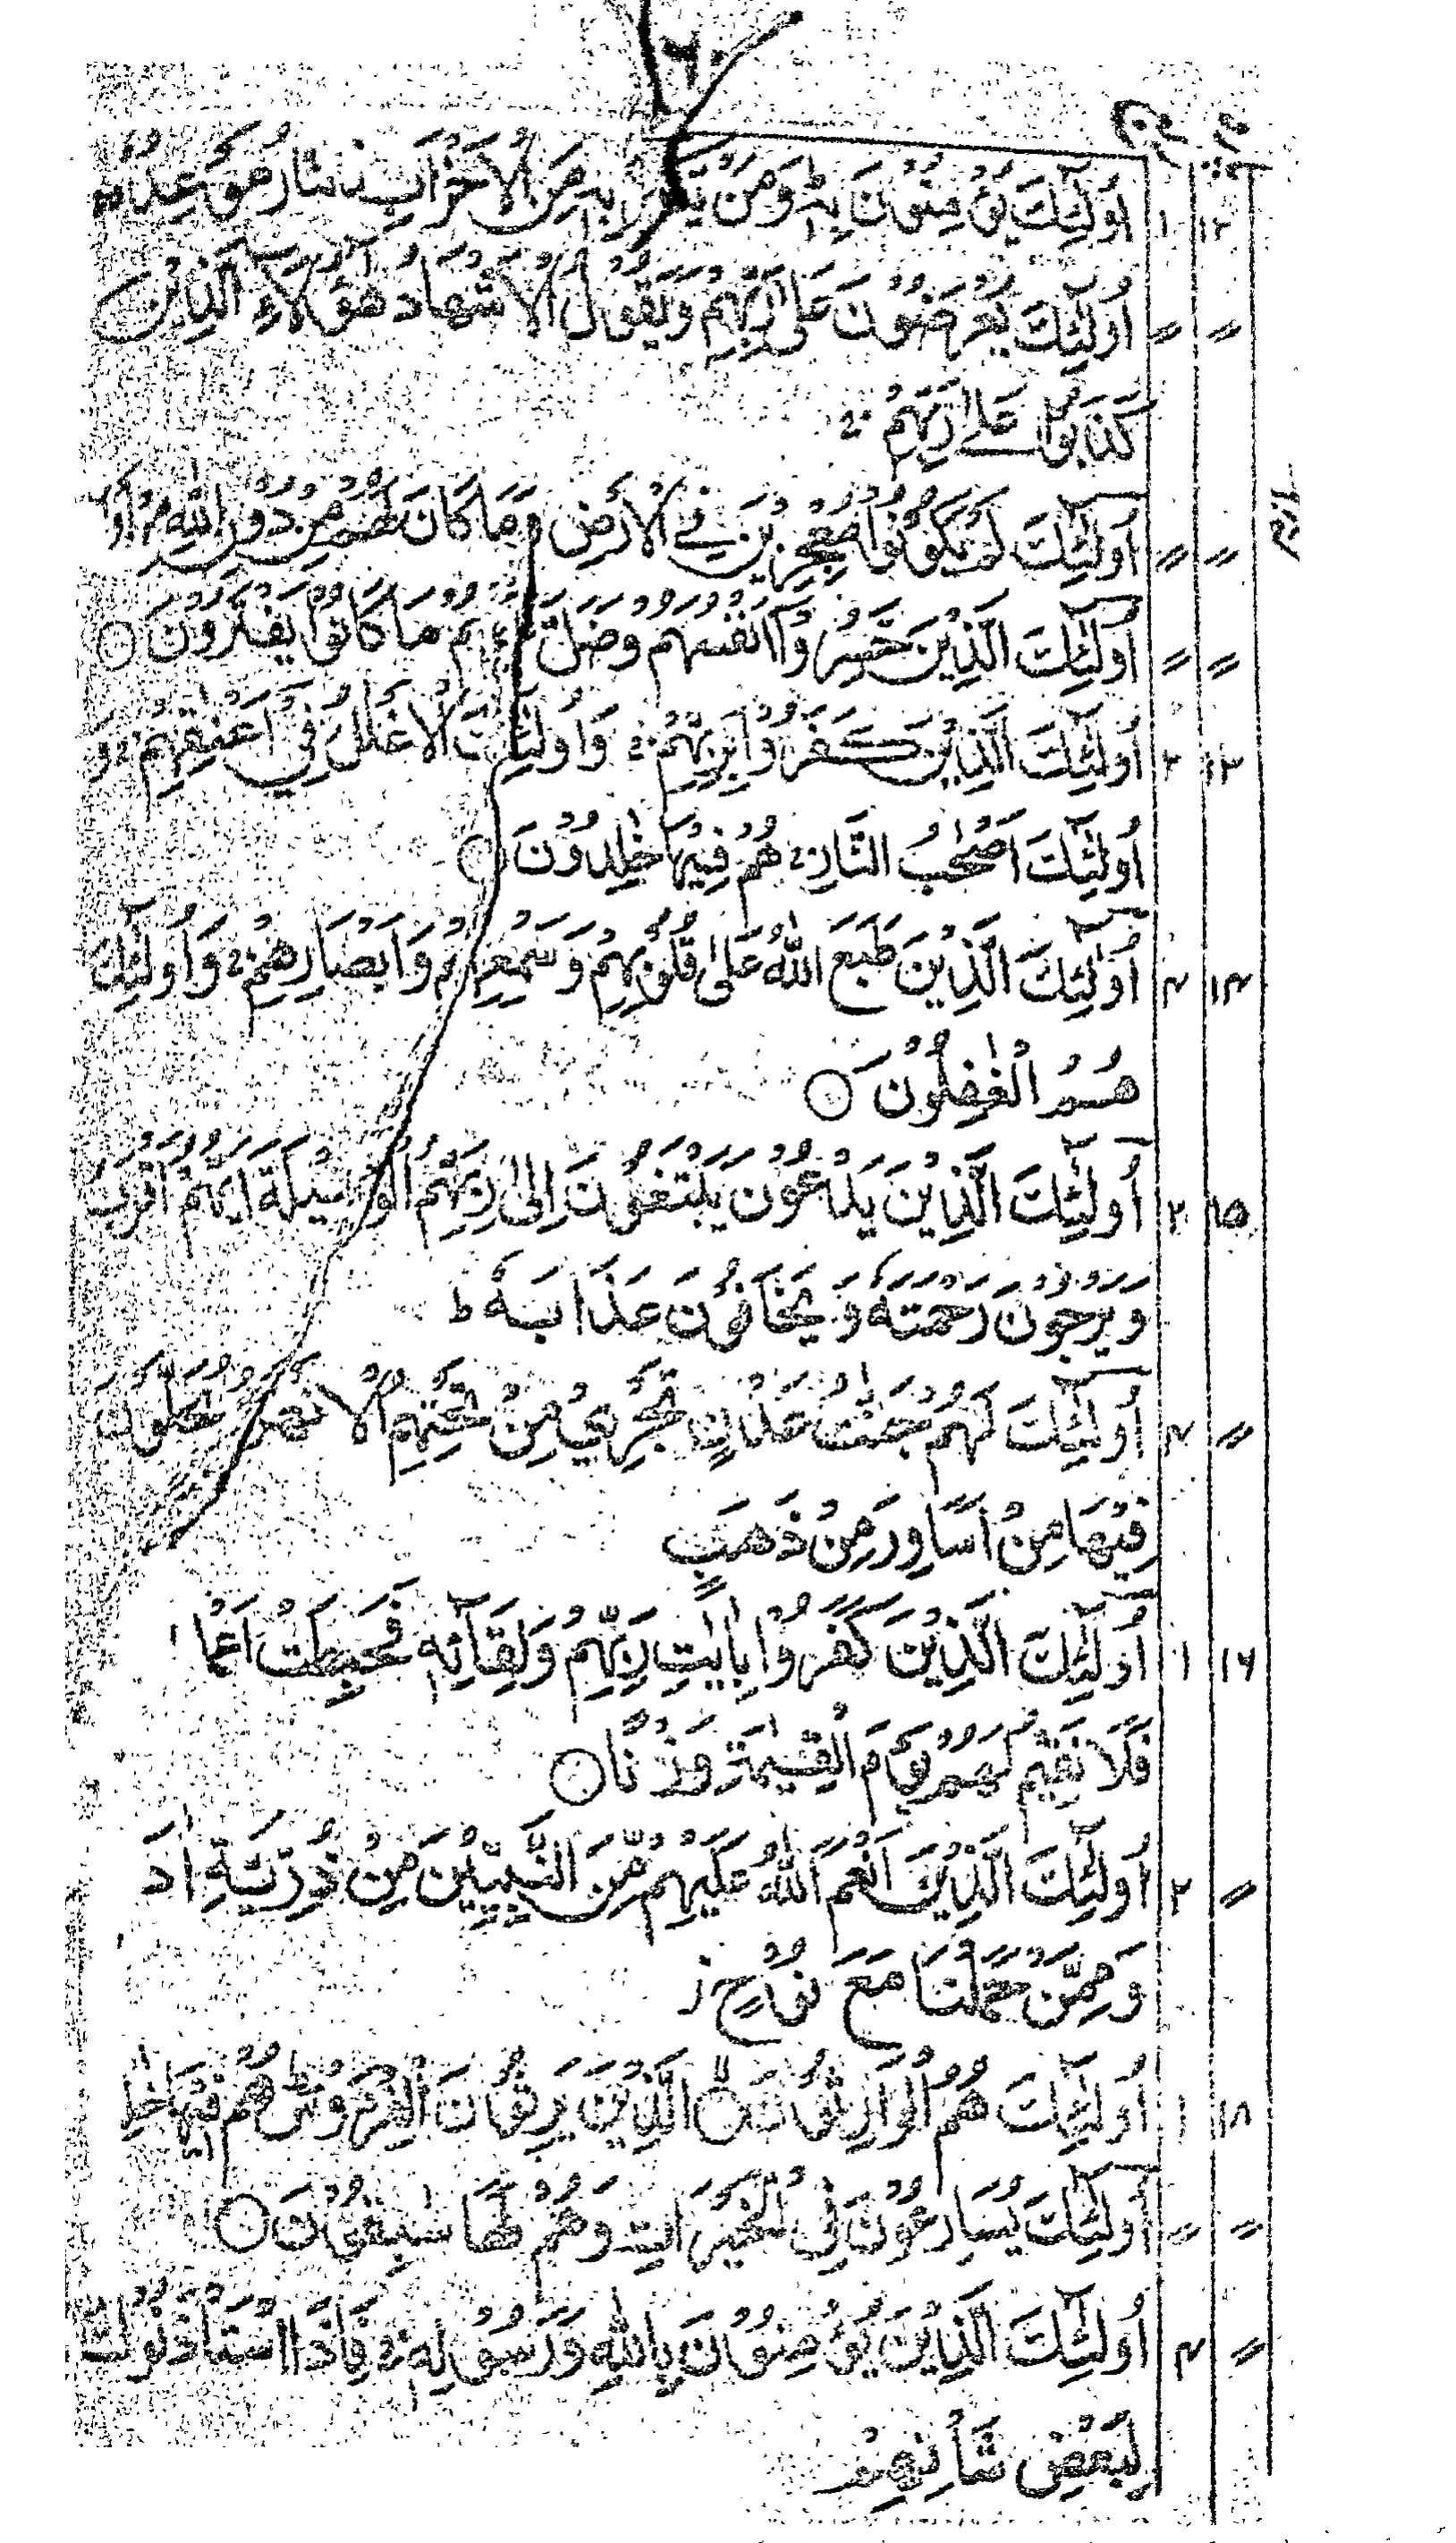 ۶۰
۱۲ ۱ اُولٰٓئِكَ يُؤْمِنُوْنَ بِهٖ ؕ وَمَنْ يَّكْفُرْ بِهٖ مِنَ الْاَحْزَابِ فَالنَّارُ مَوْعِدُهٗ
〃 〃 اُولٰٓئِكَ يُعْرَضُوْنَ عَلٰى رَبِّهِمْ وَيَقُوْلُ الْاَشْهَادُ هٰٓؤُلَآءِ الَّذِيْنَ
كَذَبُوْا عَلٰے رَبِّهِمْ ۚ
〃 〃 اُولٰٓئِكَ لَمْ يَكُوْنُوْا مُعْجِزِيْنَ فِے الْاَرْضِ وَمَا كَانَ لَهُمْ مِّنْ دُوْنِ اللّٰهِ مِنْ اَوْ
〃 〃 اُولٰٓئِكَ الَّذِيْنَ خَسِرُوْٓا اَنْفُسَهُمْ وَضَلَّ عَنْهُمْ مَّا كَانُوْا يَفْتَرُوْنَ ○
۱۳ ۲ اُولٰٓئِكَ الَّذِيْنَ كَفَرُوْا بِرَبِّهِمْ ۚ وَاُولٰٓئِكَ الْاَغْلٰلُ فِيْٓ اَعْنَاقِهِمْ ۚ وَ
اُولٰٓئِكَ اَصْحٰبُ النَّارِ ۚ هُمْ فِيْهَا خٰلِدُوْنَ ○
۱۴ ۴ اُولٰٓئِكَ الَّذِيْنَ طَبَعَ اللّٰهُ عَلٰى قُلُوْبِهِمْ وَسَمْعِهِمْ وَاَبْصَارِهِمْ ۚ وَاُولٰٓئِكَ
هُمُ الْغٰفِلُوْنَ ○
۱۵ ۲ اُولٰٓئِكَ الَّذِيْنَ يَدْعُوْنَ يَبْتَغُوْنَ اِلٰى رَبِّهِمُ الْوَسِيْلَةَ اَيُّهُمْ اَقْرَبُ
وَيَرْجُوْنَ رَحْمَتَهٗ وَيَخَافُوْنَ عَذَابَهٗ ط
〃 ۴ اُولٰٓئِكَ لَهُمْ جَنّٰتُ عَدْنٍ تَجْرِيْ مِنْ تَحْتِهِمُ الْاَنْهٰرُ يُحَلَّوْنَ
فِيْهَا مِنْ اَسَاوِرَ مِنْ ذَهَبٍ
۱۶ ۱ اُولٰٓئِكَ الَّذِيْنَ كَفَرُوْا بِاٰيٰتِ رَبِّهِمْ وَلِقَآئِهٖ فَحَبِطَتْ اَعْمَا
فَلَا نُقِيْمُ لَهُمْ يَوْمَ الْقِيٰمَةِ وَزْنًا ○
〃 ۲ اُولٰٓئِكَ الَّذِيْنَ اَنْعَمَ اللّٰهُ عَلَيْهِمْ مِّنَ النَّبِيّٖنَ مِنْ ذُرِّيَّةِ اٰدَ
وَمِمَّنْ حَمَلْنَا مَعَ نُوْحٍ ز
۱۸ ۱ اُولٰٓئِكَ هُمُ الْوَارِثُوْنَ ○ الَّذِيْنَ يَرِثُوْنَ الْفِرْدَوْسَ ؕ هُمْ فِيْهَا خٰلِ
〃 〃 اُولٰٓئِكَ يُسَارِعُوْنَ فِى الْخَيْرَاتِ وَهُمْ لَهَا سٰبِقُوْنَ ○
〃 ۴ اُولٰٓئِكَ الَّذِيْنَ يُؤْمِنُوْنَ بِاللّٰهِ وَرَسُوْلِهٖ ۚ فَاِذَا اسْتَأْذَنُوْكَ
لِبَعْضِ شَأْنِهِمْ